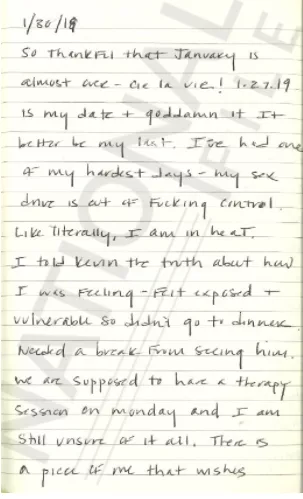 1/30/19
So Thankful that January is
almost over - cie la vie! 1.27.19
is my date + goddamn it It
better be my last. I've had one
of my hardest days - my sex
drive is out of Fucking Control.
Like literally, I am in heat.
I told Kevin the truth about how
I was Feeling - Felt exposed +
vulnerable so didn't go to dinner.
Needed a break From seeing him.
we are supposed to have a therapy
session on monday and I am
still unsure of it all. There is
a piece of me that wishes
NATIONAL